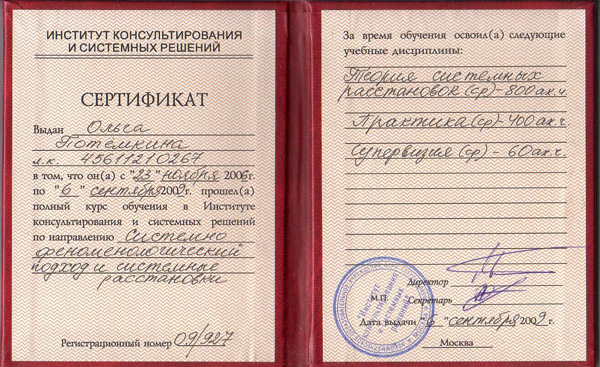 ИНСТИТУТ КОНСУЛЬТИРОВАНИЯ
И СИСТЕМНЫХ РЕШЕНИЙ
СЕРТИФИКАТ
Выдан Ольга
Потемкина
л.к. 45611210267
в том, что он(а) с "23" ноября 2006г.
по "6" сентября 2009г. прошел(а)
полный курс обучения в Институте
консультирования и системных решений
по направлению Системно
феноменологический
подход и системные
расстановки
Регистрационный номер 09/927
За время обучения освоил(а) следующие
учебные дисциплины:
Теория системных
расстановок (ср) - 800 ак.ч.
Практика (ср) - 400 ак.ч.
Супервизия (ср) - 60 ак.ч.
Директор
М.П. Секретарь
Дата выдачи "6" сентября 2009г.
Москва